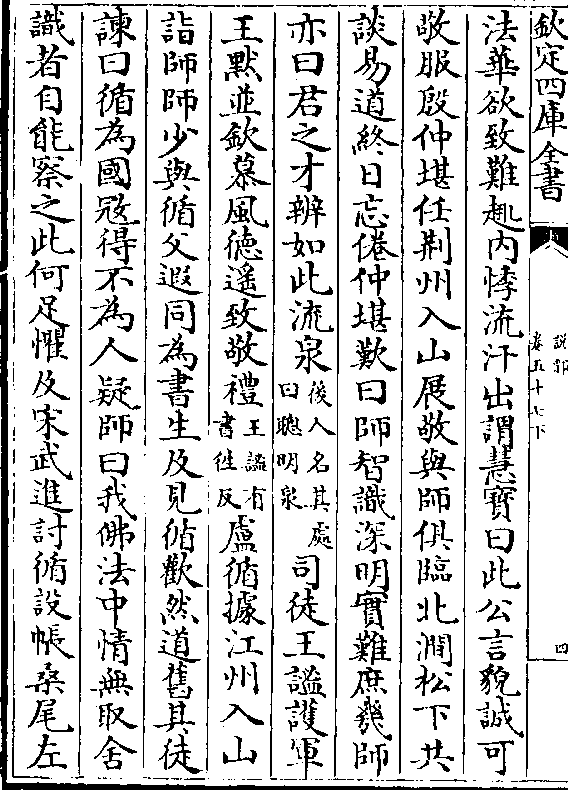 欽定四庫全書
說郛
卷五十七下
四
法華欲致難輒内悸流汗出謂慧寶曰此公言貌誠可
敬服殷仲堪任荆州入山展敬與師俱臨北澗松下共
談易道終日忘倦仲堪歎曰師智識深明實難庶幾師
亦曰君之才辨如此流泉後人名其處曰聰明泉司徒王謐護軍
王默並欽慕風德遥致敬禮王謐有書徃反盧循據江州入山
詣師師少與循父遐同為書生及見循歡然道舊其徒
諫曰循為國寇得不為人疑師曰我佛法中情無取舍
識者自能察之此何足懼及宋武進討循設帳桑尾左